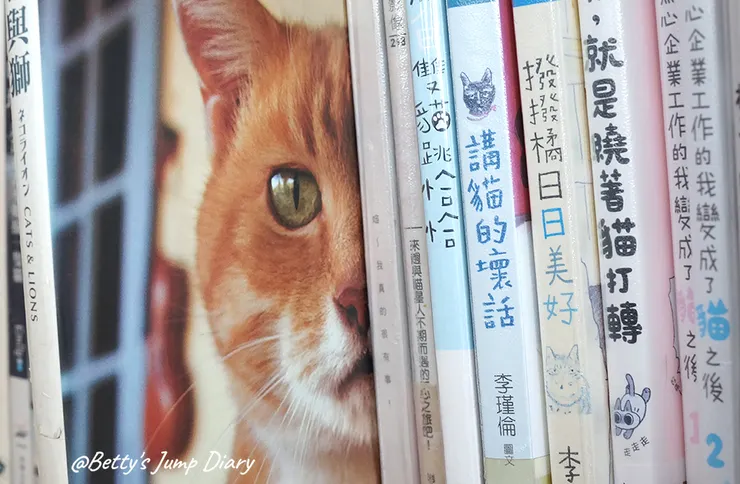 與獅
ネコライオン CATS & LIONS
影像
243
貓跳恰恰
來趟與貓星人不期而遇的
心之旅吧！
講貓的壞話
李瑾倫
圖文
撥撥橘日日美好
李
，就是曉著貓打轉
走走走
心企業工作的我變成了
之後
1
心企業工作的我變成了貓之後
2
@Betty's Jump Diary